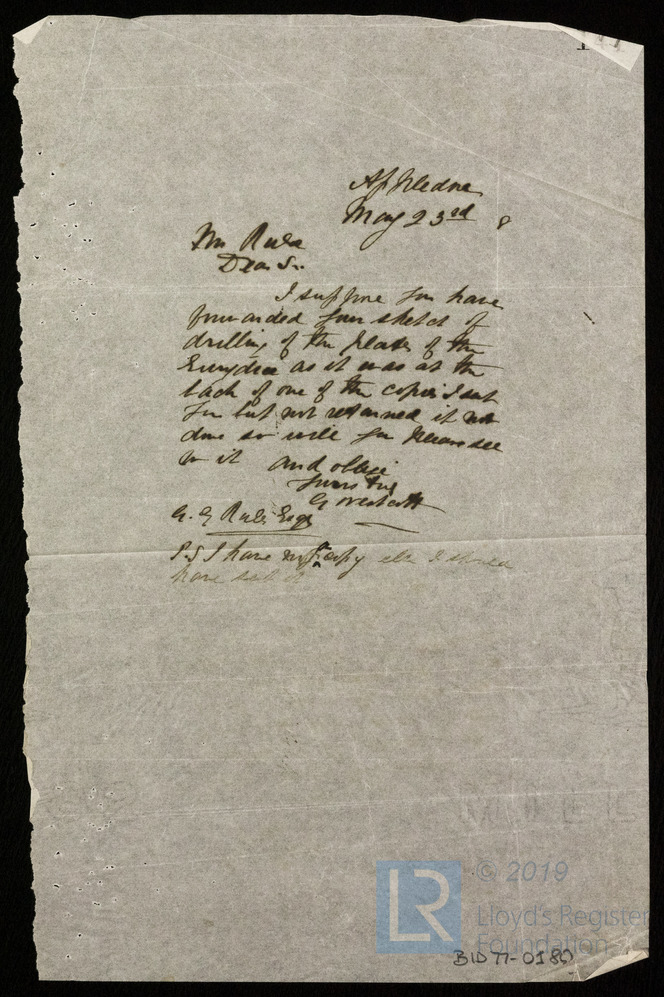 Appledore
May 23rd
Mr Rule
Dear Sir
I suppose you have
forwarded your sketch of
drilling of the plates of the
Eurydice as it was at the
back of one of the copies I sent
you but not returned if not
done so will you please see
to it and oblige
Yours Truly
G Westcott
G. G Rule Esqr
P.S I have no copy else I should
have sent it
© 2019
LR
Lloyd's Register
Foundation
BID 77-0180